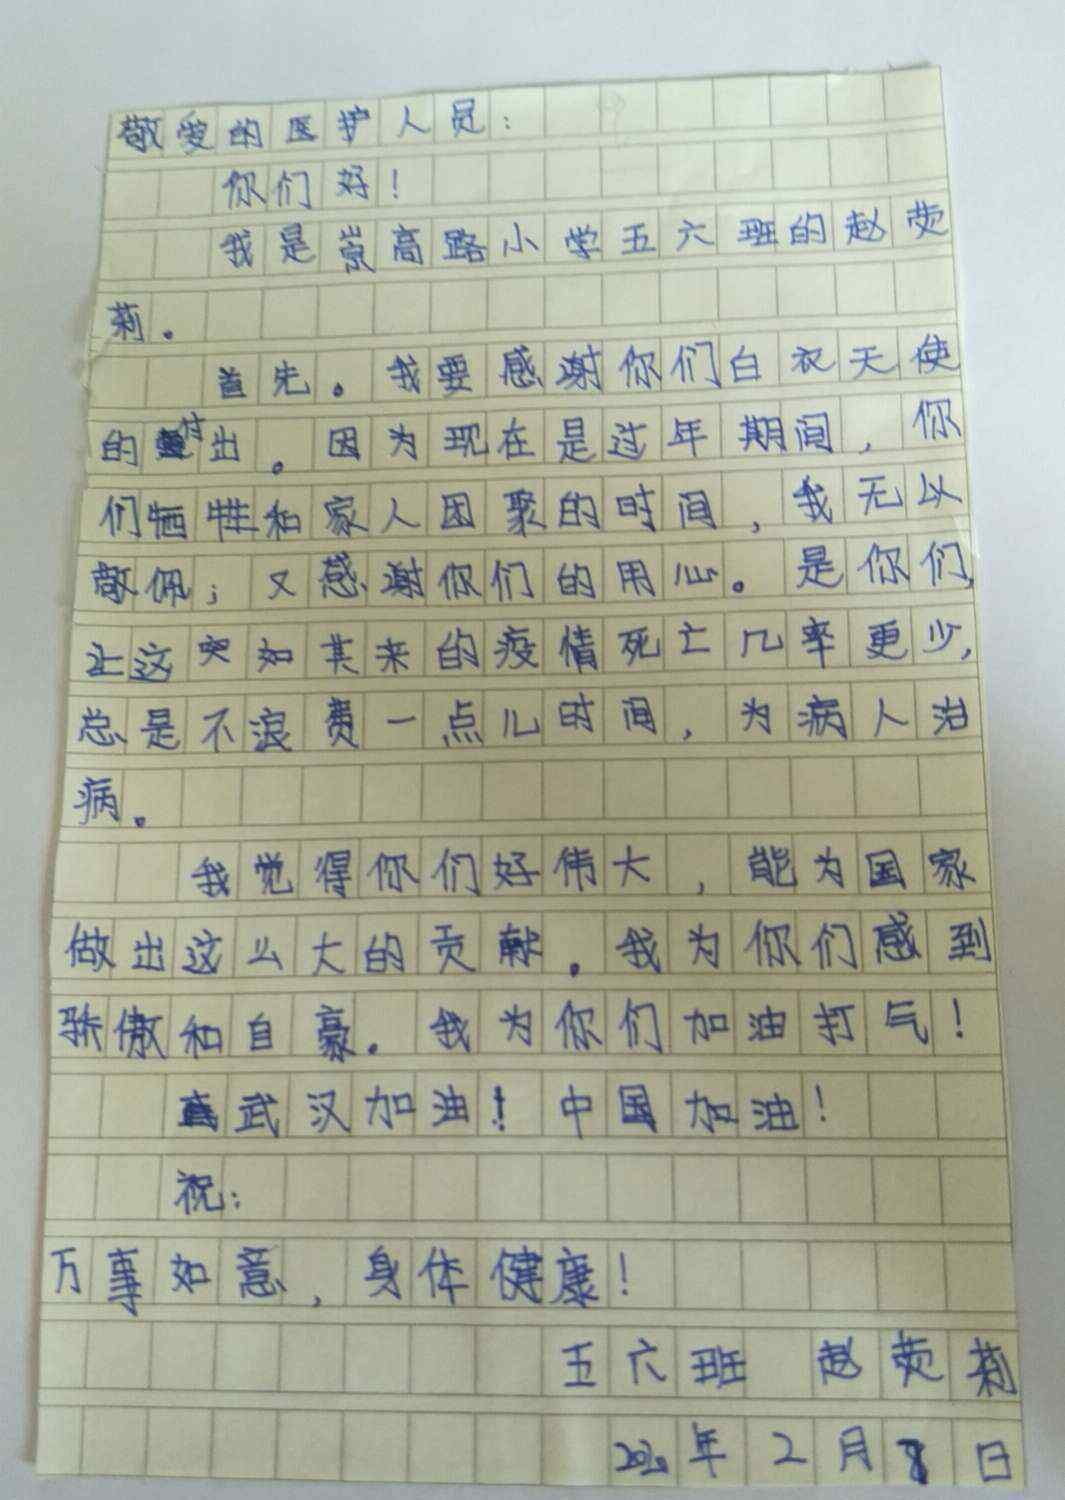 敬爱的医护人员：
你们好！
我是嵩高路小学五六班的赵荧
莉。
首先。我要感谢你们白衣天使
的付出。因为现在是过年期间，你
们牺牲和家人团聚的时间，我无以
敬佩；又感谢你们的用心。是你们，
让这突如其来的疫情死亡几率更少，
总是不浪费一点儿时间，为病人治
病。
我觉得你们好伟大，能为国家
做出这么大的贡献。我为你们感到
骄傲和自豪。我为你们加油打气！
武汉加油！中国加油！
祝：
万事如意，身体健康！
五六班 赵荧莉
2020年2月8日